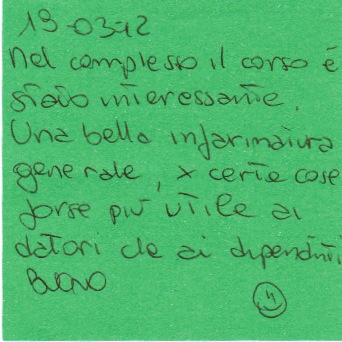 19-03-12
Nel complesso il corso é
stato interessante.
Una bella infarinatura
generale, x certe cose
forse più utile ai
datori che ai dipendenti
BUONO